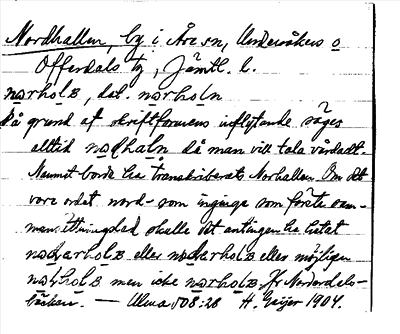 Nordhallen, by i Åre sn, Undersåkers o
Offerdals tg, Jämtl. l.
norhols, dat. norholn
På grund af skriftformens inflytande säges
alltid nodhaln då man vill tala vårdadt.
Namnet borde ha transkriberats Norhallen. Om det
vore ordet nord- som inginge som förste sam-
mansättningsled skulle det antingen ha hetat
noderhols eller noderhols eller möjligen
nolhols men icke norhols. Jfr Norderdels-
bäcken. — Ulma 508:28 H. Geijer 1904.